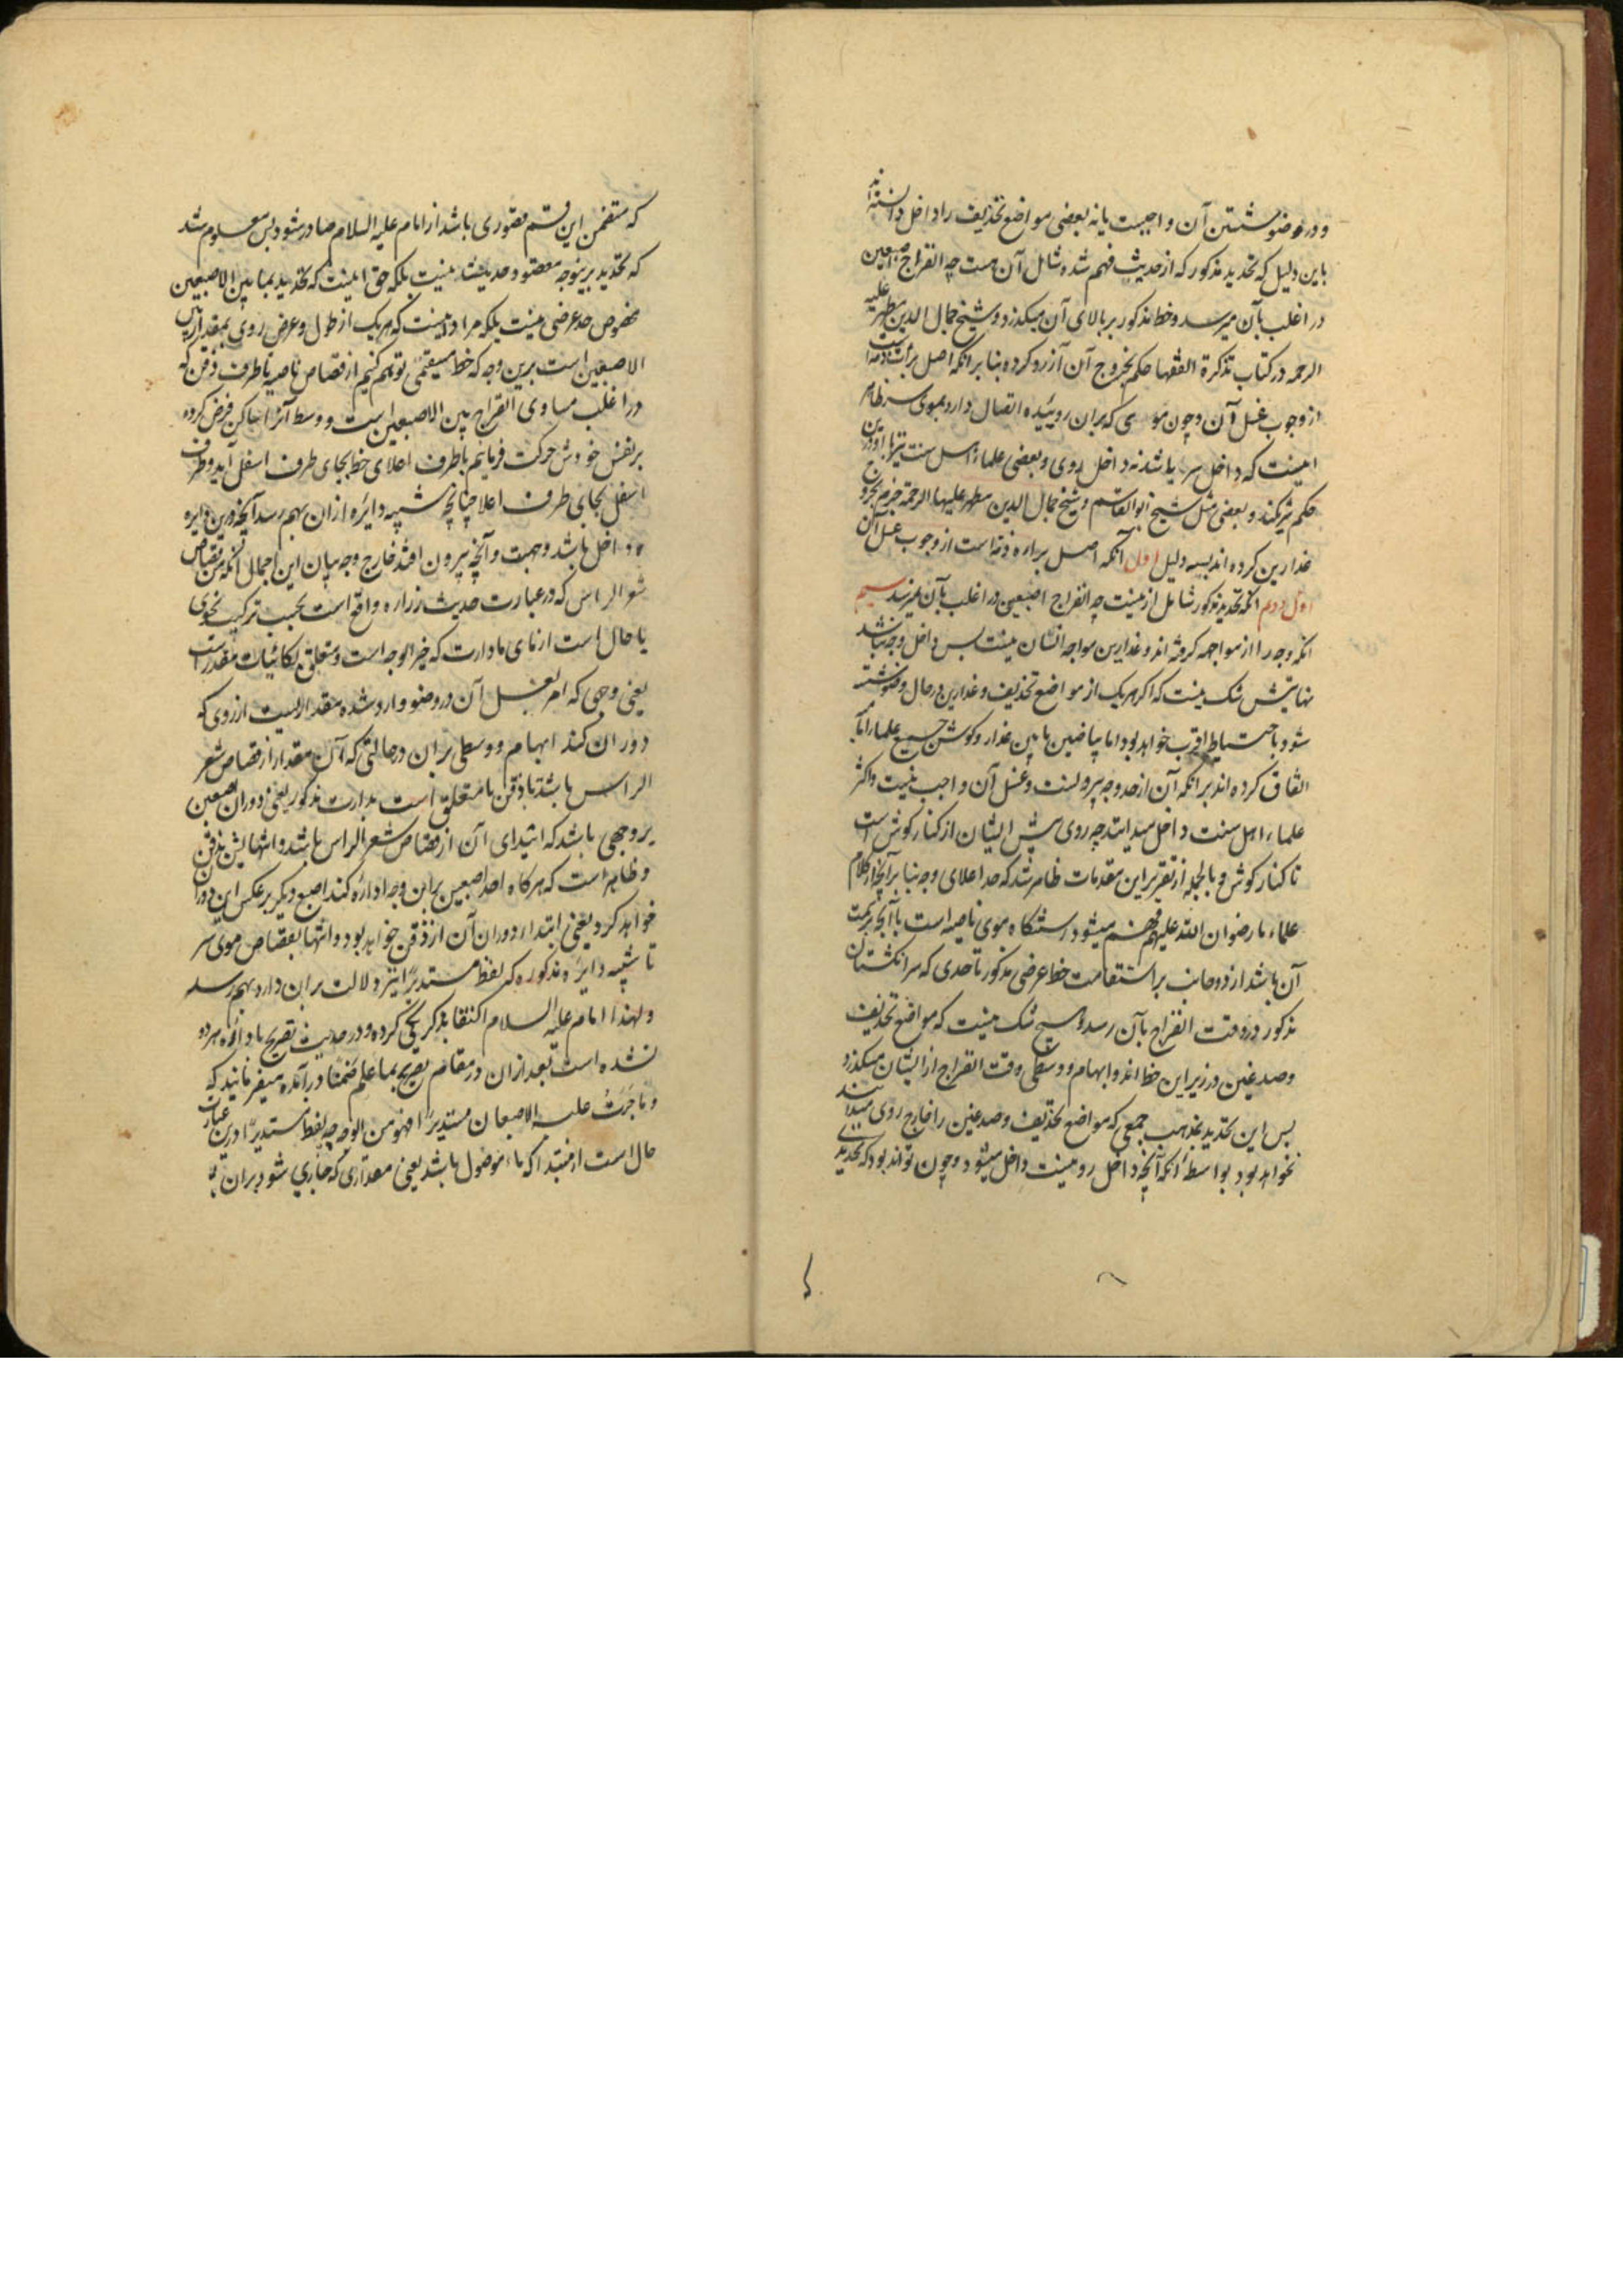 و در وضو شستن آن واجبست یا نه بعضی مواضع تحذیف را داخل دانسته‌اند
باین دلیل که تحدید مذکور که از حدیث فهم شد شامل آن هست چه انفراج اصبعین
در اغلب بآن میرسد و خط مذکور بر بالای آن میگذرد و شیخ جمال الدین مطهر علیه
الرحمه در کتاب تذکرة الفقها حکم بخروج آن از رو کرده بنا بر انکه اصل برائت ذمه است
از وجوب غسل آن و چون موی که بران روئیده اتصال دارد بموی سر ظاهر
اینست که داخل سر باشد نه داخل روی و بعضی علماء اهل سنت نیز باین
حکم کرده‌اند و بعضی مثل شیخ ابو القاسم و شیخ جمال الدین مطهر علیهما الرحمة جزم بخروج
عذارین کرده اند بسه دلیل اول آنکه اصل براءه ذمه است از وجوب غسل آن
دوم انکه تحدید مذکور شامل آن نیست چه انفراج اصبعین در اغلب بآن نمیرسد سیم
انکه وجه را از مواجهه گرفته اند و عذارین مواجه انسان نیست پس داخل وجه نباشد
نهایتش شک نیست که اگر هر یک از مواضع تحذیف و عذارین در حال وضو شسته
شود باحتیاط اقرب خواهد بود اما بیاضین ما بین عذار و کوش جمیع علماء ما
اتفاق کرده اند بر انکه آن از حد وجه بیرونست و غسل آن واجب نیست و اکثر
علماء اهل سنت داخل میدانند چه روی پیش ایشان از کنار کوش است
تا کنار کوش و بالجمله از تقریر این مقدمات ظاهر شد که حد اعلای وجه بنا بر آنچه از کلام
علماء ما رضوان الله علیهم فهم میشود رستنگاه موی ناصیه است با آنچه بر سمت
آن باشد از دو جانب بر استقامت خط عرضی مذکور تا حدی که سر انکشتان
مذکور در وقت انفراج بآن رسد و هیچ شک نیست که مواضع تحذیف
و صدغین در زیر این خط اند و ابهام و وسطی وقت انفراج از ایشان میگذرد
پس این تحدید بمذهب جمعی که مواضع تحذیف و صدغین را خارج روی میدانند
نخواهد بود بواسطه انکه آنچه داخل رو نیست داخل میشود و چون تواند بود که تحدیدی
که متضمن این قسم قصوری باشد از امام علیه السلام صادر شود پس معلوم شد
که تحدید برینوجه مقصود حدیث نیست بلکه حق اینست که تحدید بما بین الاصبعین
مخصوص حد عرضی نیست بلکه مراد اینست که هر یک از طول و عرض روی بمقدار ما بین
الاصبعین است برین وجه که خط مستقیمی توهم کنیم از قصاص ناصیه تا طرف ذقن که
در اغلب مساوی انفراج بین الاصبعین است و وسط آنرا ساکن فرض کرده
بر نفس خودش حرکت فرمایم تا طرف اعلای خط بجای طرف اسفل آید و طرف
اسفل بجای طرف اعلا چنانچه شبیه دایره از ان بهم رسد آنچه درین دایره
داخل باشد وجهست و آنچه بیرون افتد خارج وجه بیان این اجمال آنکه من قصاص
شعر الراس که در عبارت حدیث زراره واقع است بحسب ترکیب نحوی
یا حال است از مای ما دارت که خبر الوجه است و متعلق بکائنات مقدر است
یعنی وجهی که امر بغسل آن در وضو وارد شده مقداریست از روی که
دوران کند ابهام و وسطی بران در حالتی که آن مقدار از قصاص شعر
الراس باشد تا ذقن یا متعلق است بدارت مذکور یعنی دوران اصبعین
بر وجهی باشد که ابتدای آن از قصاص شعر الراس باشد و انتهایش ذقن
و ظاهر است که هر کاه احد اصبعین بران وجه اداره کند اصبع دیکر بر عکس این دوران
خواهد کرد یعنی ابتداء دوران آن از ذقن خواهد بود و انتها بقصاص موی سر
تا شبیه دایره مذکوره که لفظ مستدیرا نیز دلالت بران دارد بهم رسد
و لهذا امام علیه السلام اکتفا بذکر یکی کرده و در حدیث تصریح باداره هر دو
نشده است بعد ازان در مقام تصریح بما علم ضمنا در آمده میفرمایند که
و ما جرت علیه الاصبعان مستدیرا فهو من الوجه چه لفظ مستدیرا درین عبارت
حال است از مبتدا که ماء موصول باشد یعنی مقداری که جاری شود بران